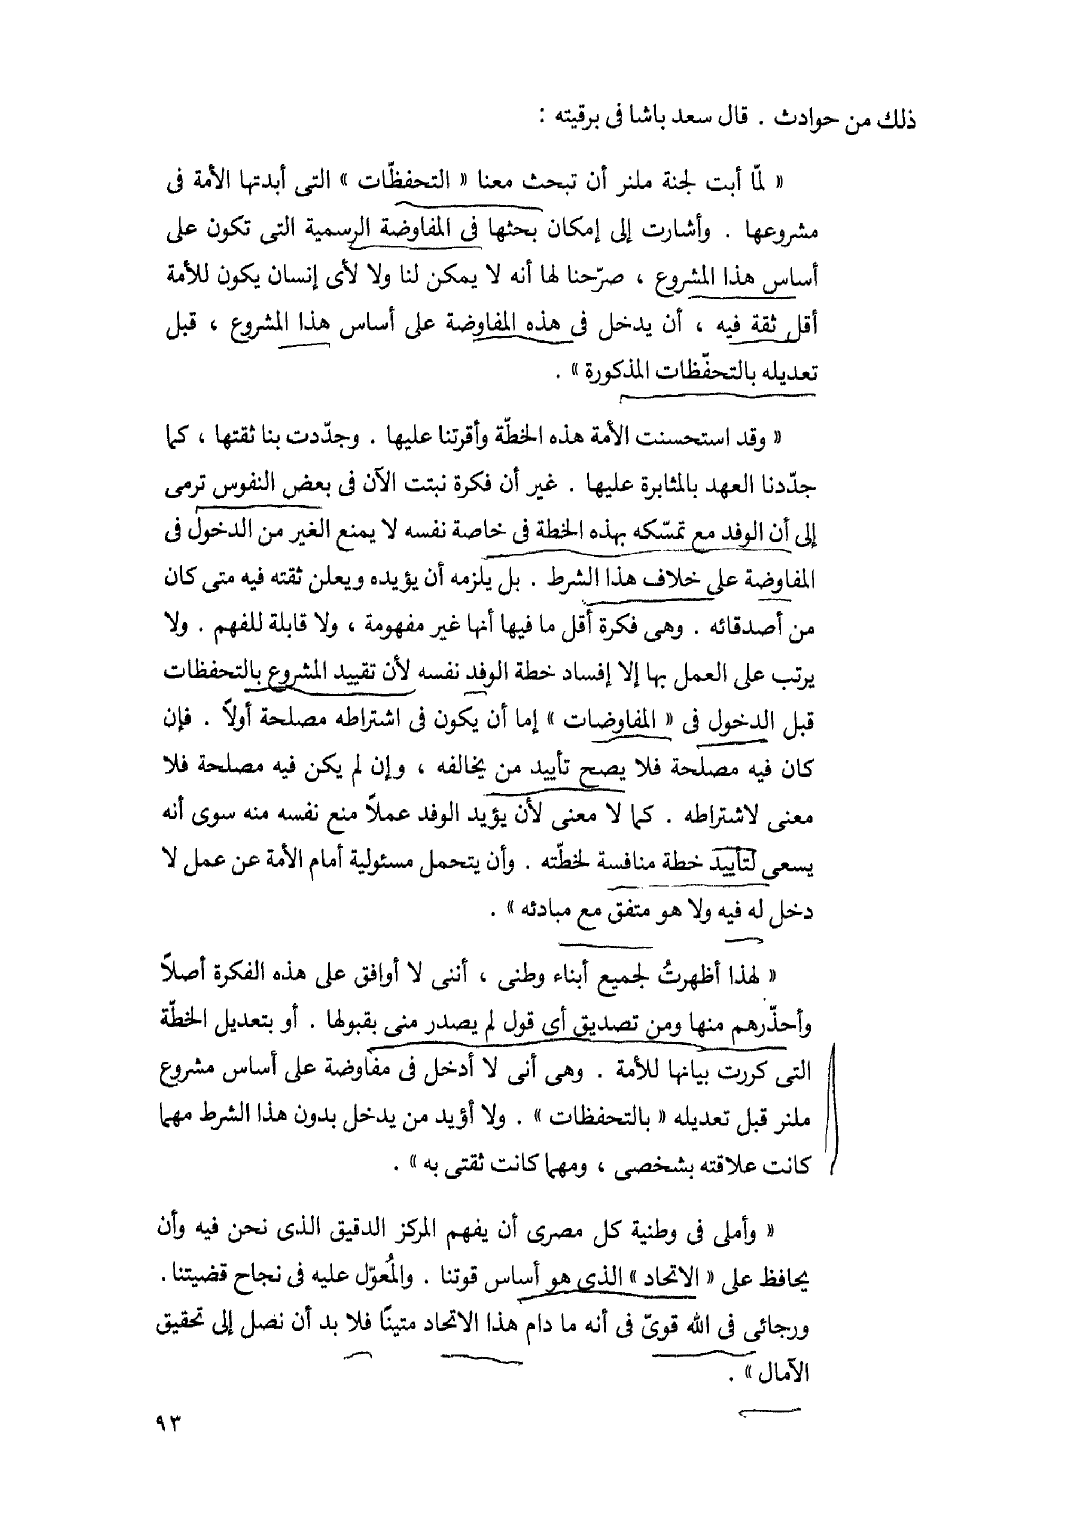 ذلك من حوادث . قال سعد باشا فى برقيته :
« لمّا أبت لجنة ملنر أن تبحث معنا « التحفظّات » التى أبدتها الأمة فى
مشروعها . وأشارت إلى إمكان بحثها فى المفاوضة الرسمية التى تكون على
أساس هذا المشروع ، صرّحنا لها أنه لا يمكن لنا ولا لأى إنسان يكون للأمة
أقل ثقة فيه ، أن يدخل فى هذه المفاوضة على أساس هذا المشروع ، قبل
تعديله بالتحفّظات المذكورة » .
« وقد استحسنت الأمة هذه الخطّة وأقرتنا عليها . وجدّدت بنا ثقتها ، كما
جدّدنا العهد بالمثابرة عليها . غير أن فكرة نبتت الآن فى بعض النفوس ترمى
إلى أن الوفد مع تمسّكه بهذه الخطة فى خاصة نفسه لا يمنع الغير من الدخول فى
المفاوضة على خلاف هذا الشرط . بل يلزمه أن يؤيده ويعلن ثقته فيه متى كان
من أصدقائه . وهى فكرة أقل ما فيها أنها غير مفهومة ، ولا قابلة للفهم . ولا
يرتب على العمل بها إلا إفساد خطة الوفد نفسه لأن تقييد المشروع بالتحفظات
قبل الدخول فى « المفاوضات » إما أن يكون فى اشتراطه مصلحة أولاً . فإن
كان فيه مصلحة فلا يصح تأييد من يخالفه ، وإن لم يكن فيه مصلحة فلا
معنى لاشتراطه . كما لا معنى لأن يؤيد الوفد عملاً منع نفسه منه سوى أنه
يسعى لتأييد خطة منافسة لخطّته . وأن يتحمل مسئولية أمام الأمة عن عمل لا
دخل له فيه ولا هو متفق مع مبادئه » .
« لهذا أظهرتُ لجميع أبناء وطنى ، أننى لا أوافق على هذه الفكرة أصلاً
وأحذّرهم منها ومن تصديق أى قول لم يصدر منى بقبولها . أو بتعديل الخطّة
التى كررت بيانها للأمة . وهى أنى لا أدخل فى مفاوضة على أساس مشروع
ملنر قبل تعديله « بالتحفظات » . ولا أؤيد من يدخل بدون هذا الشرط مهما
كانت علاقته بشخصى ، ومهما كانت ثقتى به » .
« وأملى فى وطنية كل مصرى أن يفهم المركز الدقيق الذى نحن فيه وأن
يحافظ على « الاتحاد » الذى هو أساس قوتنا . والمُعوّل عليه فى نجاح قضيتنا .
ورجائى فى الله قوىّ فى أنه ما دام هذا الاتحاد متينًا فلا بد أن نصل إلى تحقيق
الآمال » .
٩٣